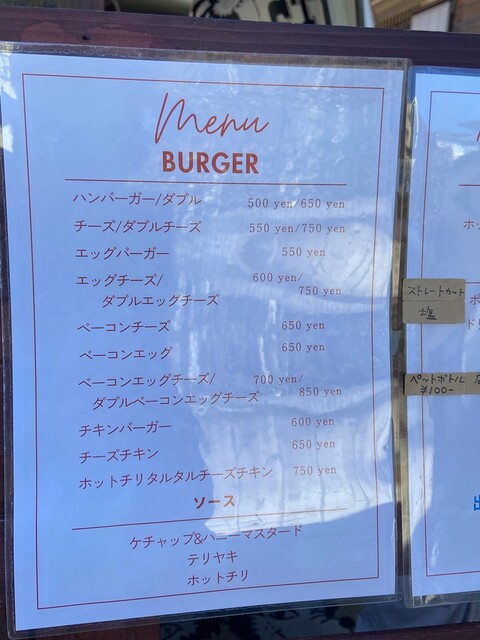 Menu
BURGER
ハンバーガー/ダブル 500 yen/650 yen
チーズ/ダブルチーズ 550 yen/750 yen
エッグバーガー 550 yen
エッグチーズ/ 600 yen/
ダブルエッグチーズ 750 yen
ベーコンチーズ 650 yen
ベーコンエッグ 650 yen
ベーコンエッグチーズ/ 700 yen/
ダブルベーコンエッグチーズ 850 yen
チキンバーガー 600 yen
チーズチキン 650 yen
ホットチリタルタルチーズチキン 750 yen
ソース
ケチャップ&ハニーマスタード
テリヤキ
ホットチリ
ストレートカット
塩
ペットボトル
¥100-